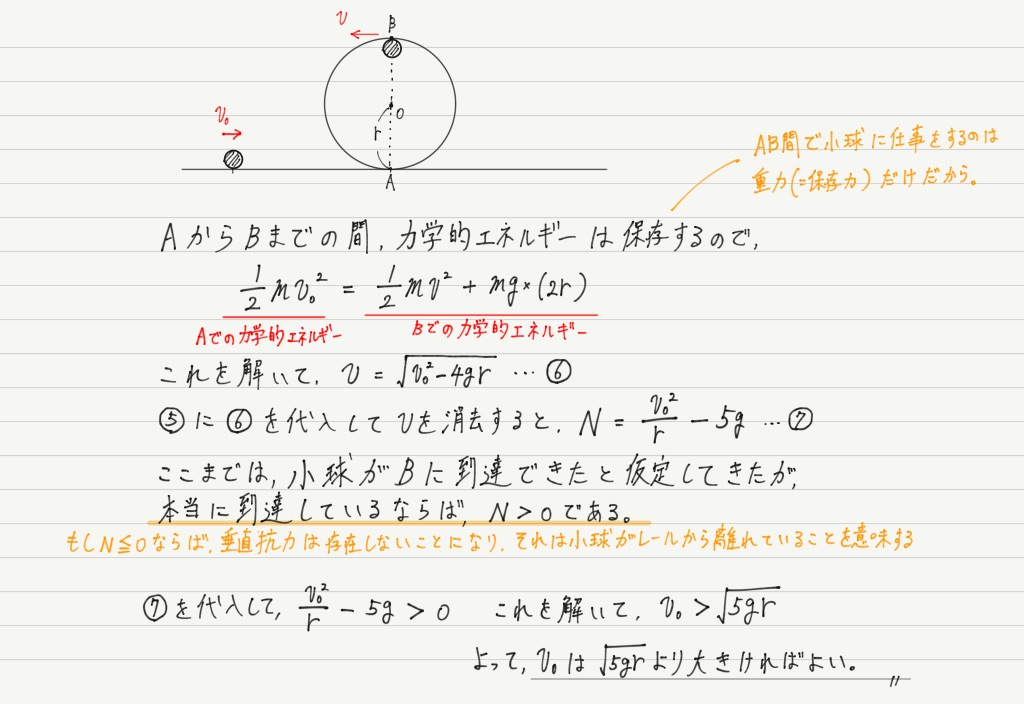 B
v
O
v₀
r
A
AB間で小球に仕事をするのは
重力(=保存力)だけだから。
AからBまでの間,力学的エネルギーは保存するので,
1/2 mv₀² = 1/2 mv² + mg×(2r)
Aでの力学的エネルギー Bでの力学的エネルギー
これを解いて, v = √(v₀²-4gr) … ⑥
⑤に⑥を代入してvを消去すると, N = v₀²/r - 5g … ⑦
ここまでは,小球がBに到達できたと仮定してきたが,
本当に到達しているならば, N > 0 である。
もしN≦0ならば,垂直抗力は存在しないことになり,それは小球がレールから離れていることを意味する
⑦を代入して, v₀²/r - 5g > 0 これを解いて, v₀ > √(5gr)
よって, v₀は√(5gr)より大きければよい。